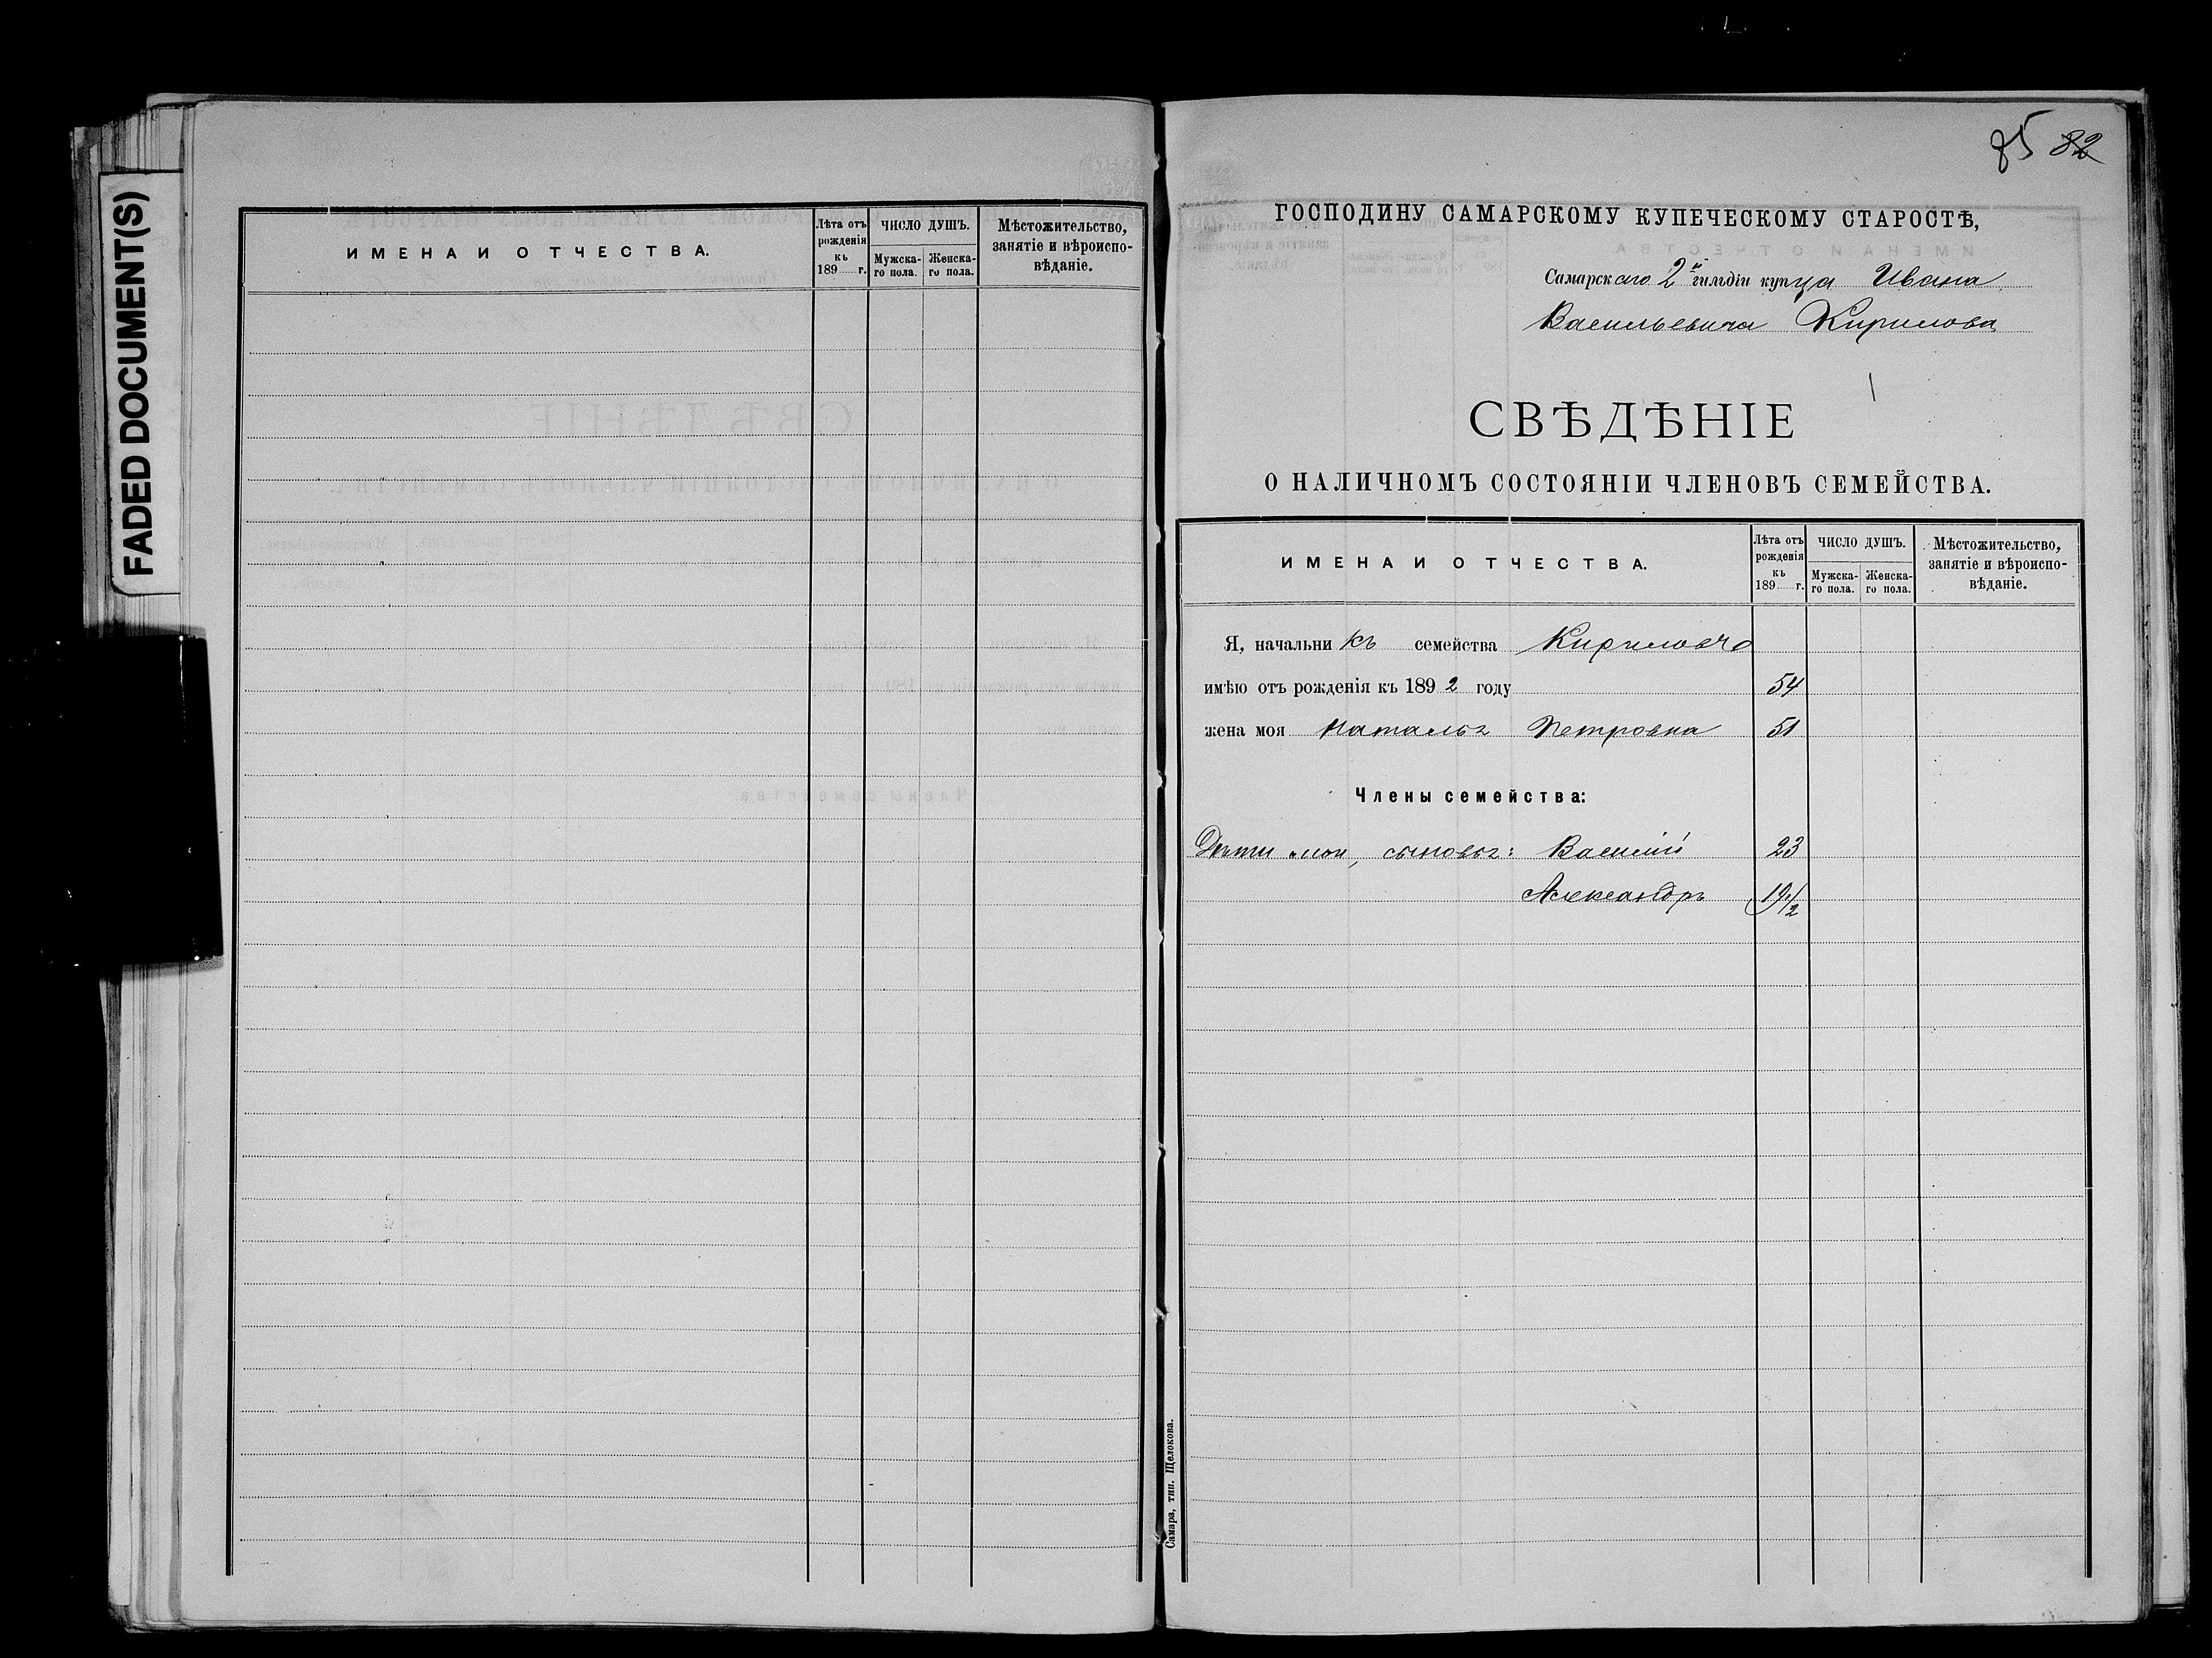 FADED DOCUMENT(S)
ИМЕНА И ОТЧЕСТВА.
Лѣта отъ рожденія къ 189 г.
ЧИСЛО ДУШЪ.
Мужска-го пола.
Женска-го пола.
Мѣстожительство, занятіе и вѣроиспо-вѣданіе.
85 82
ГОСПОДИНУ САМАРСКОМУ КУПЕЧЕСКОМУ СТАРОСТѢ,
Самарскаго 2й гильдіи купца Ивана
Васильевича Кирилова
СВѢДѢНІЕ
О НАЛИЧНОМЪ СОСТОЯНІИ ЧЛЕНОВЪ СЕМЕЙСТВА.
ИМЕНА И ОТЧЕСТВА.
Лѣта отъ рожденія къ 189 г.
ЧИСЛО ДУШЪ.
Мужска-го пола.
Женска-го пола.
Мѣстожительство, занятіе и вѣроиспо-вѣданіе.
Я, начальникъ семейства
имѣю отъ рожденія къ 1892 году 54
жена моя Наталья Петровна 51
Члены семейства:
Дѣти мои, сыновья: Василій 23
Александръ 19 1/2
Самара, тип. Щелокова.